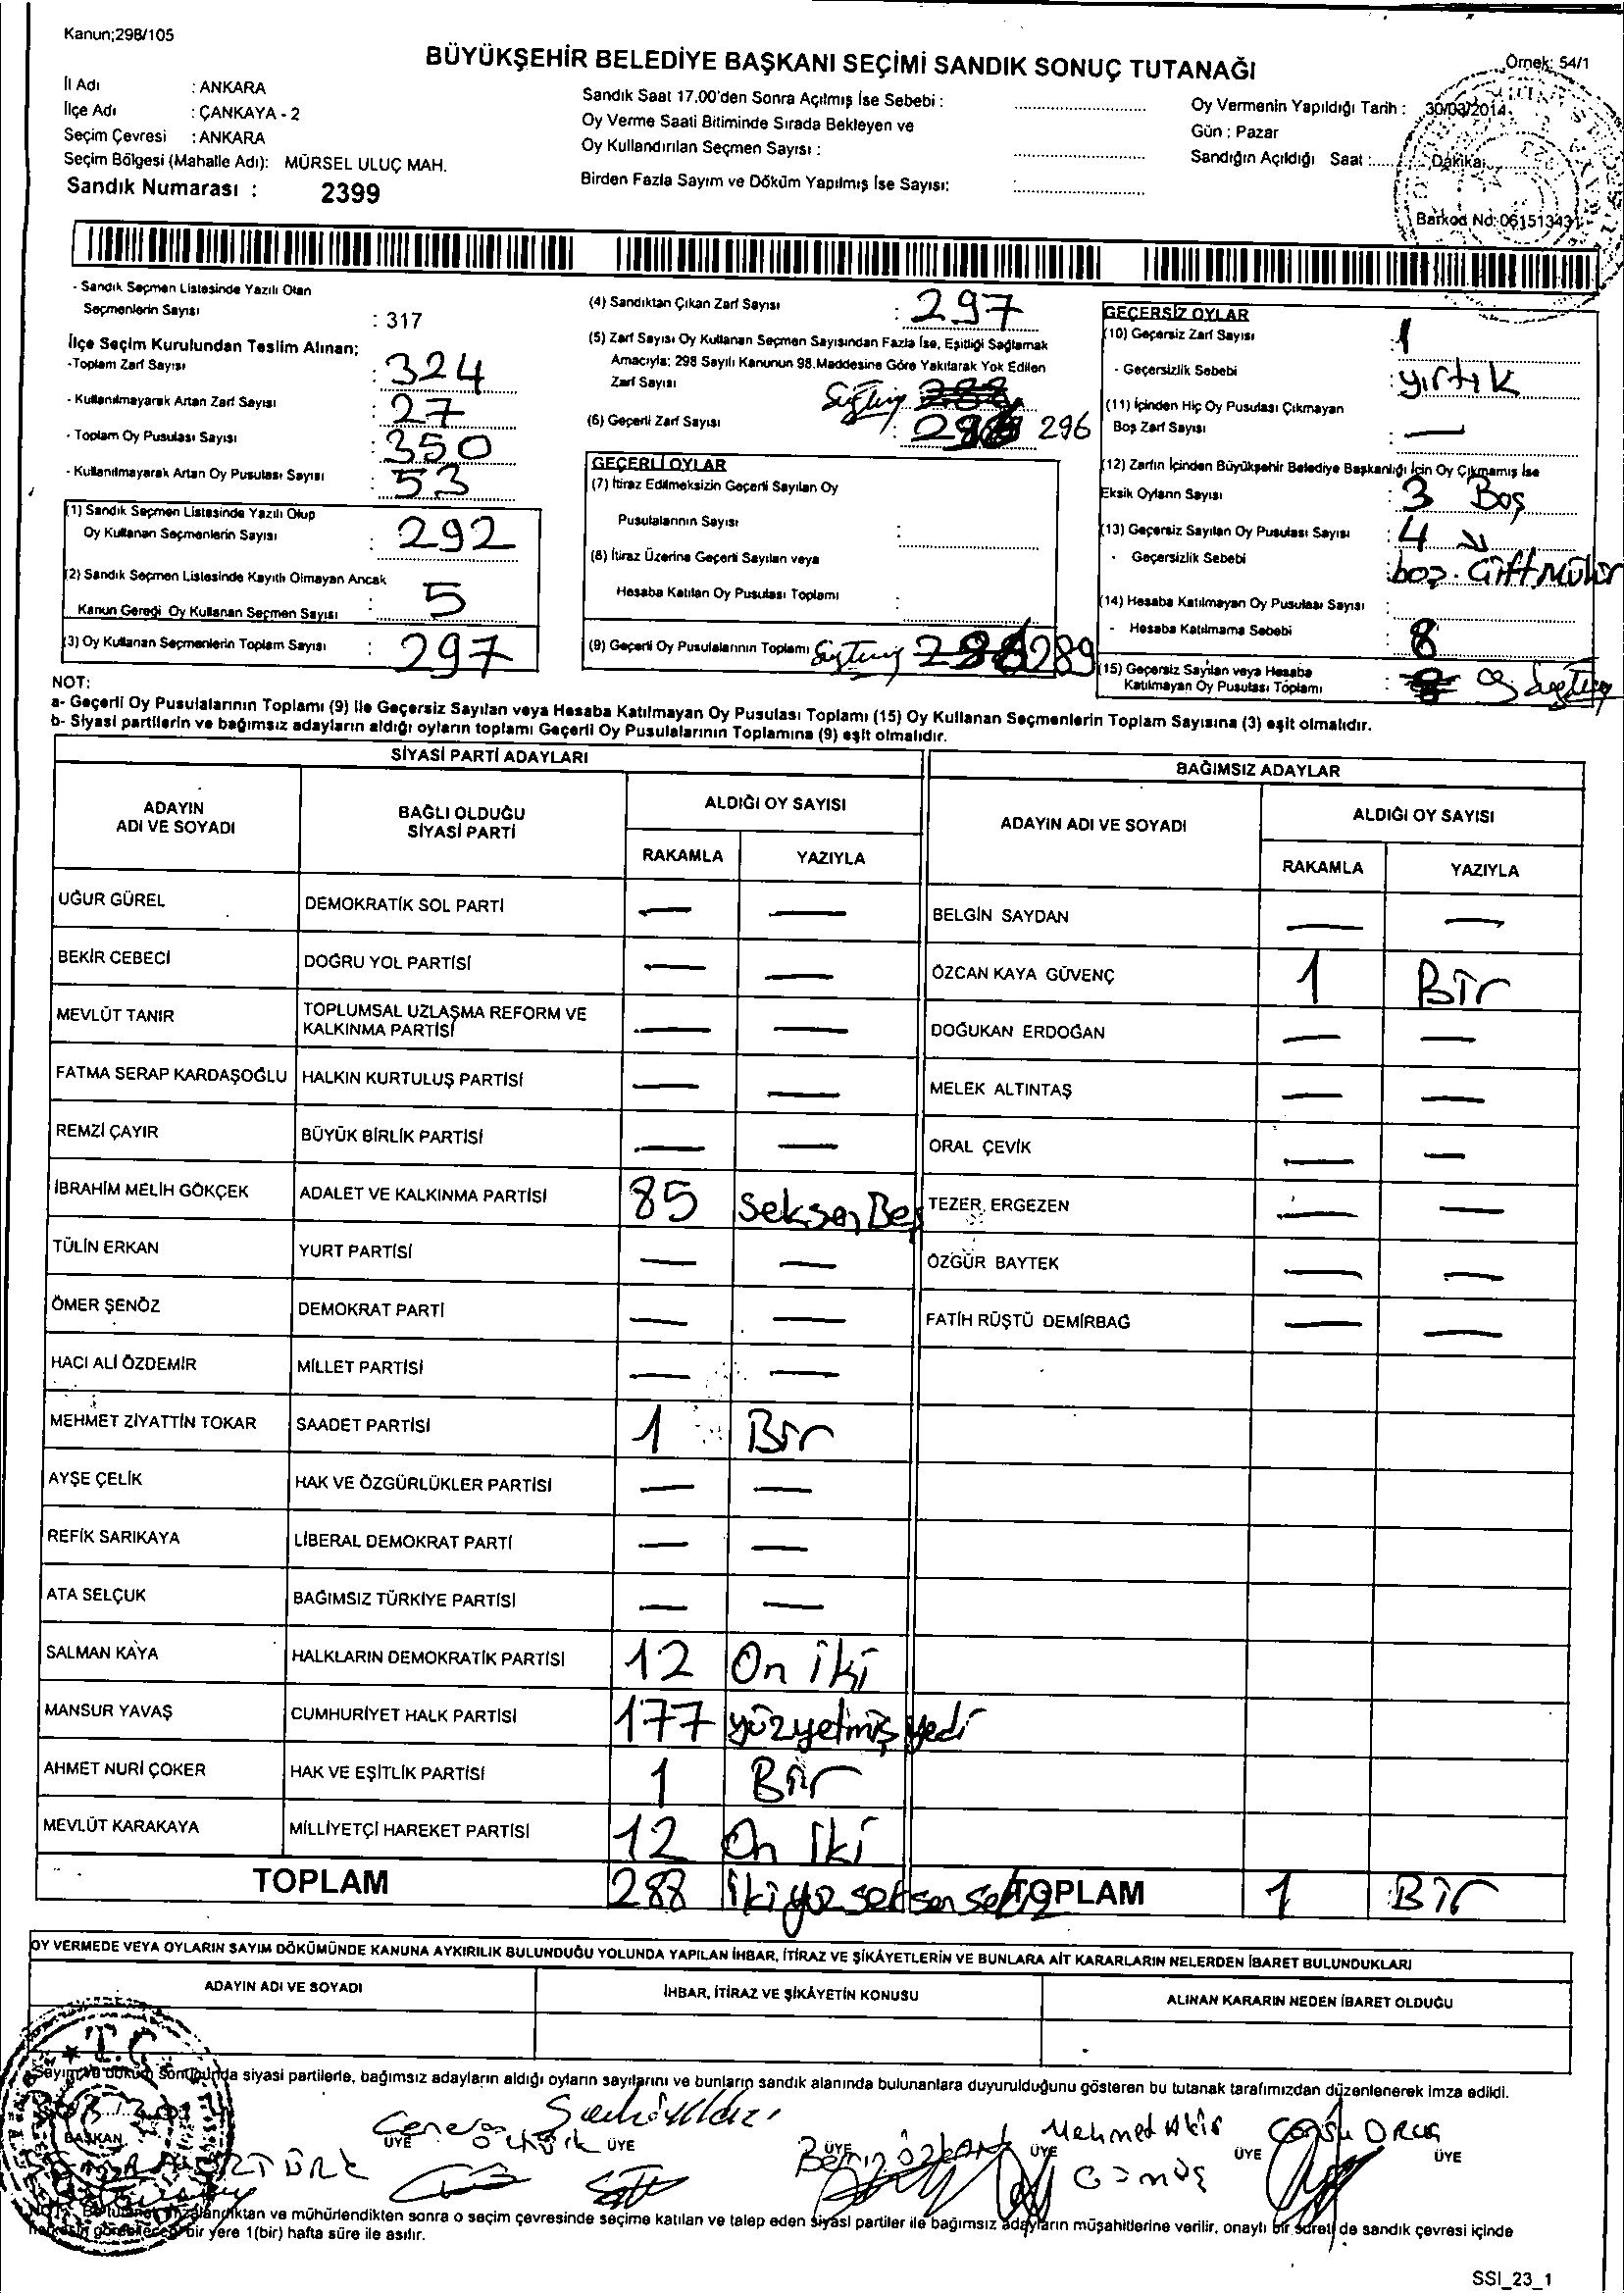 Kanun;298/105
BÜYÜKŞEHİR BELEDİYE BAŞKANI SEÇİMİ SANDIK SONUÇ TUTANAĞI
Örnek: 54/1
İl Adı : ANKARA
İlçe Adı : ÇANKAYA - 2
Seçim Çevresi : ANKARA
Seçim Bölgesi (Mahalle Adı): MÜRSEL ULUÇ MAH.
Sandık Numarası : 2399
Sandık Saat 17.00'den Sonra Açılmış İse Sebebi :
Oy Verme Saati Bitiminde Sırada Bekleyen ve
Oy Kullandırılan Seçmen Sayısı :
Birden Fazla Sayım ve Döküm Yapılmış İse Sayısı:
Oy Vermenin Yapıldığı Tarih : 30/03/2014
Gün : Pazar
Sandığın Açıldığı Saat : Dakika:
Barkod No:061513431
- Sandık Seçmen Listesinde Yazılı Olan
Seçmenlerin Sayısı : 317
İlçe Seçim Kurulundan Teslim Alınan;
-Toplam Zarf Sayısı : 324
- Kullanılmayarak Artan Zarf Sayısı : 27
- Toplam Oy Pusulası Sayısı : 350
- Kullanılmayarak Artan Oy Pusulası Sayısı : 53
(1) Sandık Seçmen Listesinde Yazılı Olup
Oy Kullanan Seçmenlerin Sayısı : 292
(2) Sandık Seçmen Listesinde Kayıtlı Olmayan Ancak
Kanun Gereği Oy Kullanan Seçmen Sayısı : 5
(3) Oy Kullanan Seçmenlerin Toplam Sayısı : 297
(4) Sandıktan Çıkan Zarf Sayısı : 297
(5) Zarf Sayısı Oy Kullanan Seçmen Sayısından Fazla İse, Eşitliği Sağlamak
Amacıyla; 298 Sayılı Kanunun 98.Maddesine Göre Yakılarak Yok Edilen
Zarf Sayısı
(6) Geçerli Zarf Sayısı : 296
GEÇERLİ OYLAR
(7) İtiraz Edilmeksizin Geçerli Sayılan Oy
Pusulalarının Sayısı :
(8) İtiraz Üzerine Geçerli Sayılan veya
Hesaba Katılan Oy Pusulası Toplamı :
(9) Geçerli Oy Pusulalarının Toplamı 289
GEÇERSİZ OYLAR
(10) Geçersiz Zarf Sayısı : 1
- Geçersizlik Sebebi : yırtık
(11) İçinden Hiç Oy Pusulası Çıkmayan
Boş Zarf Sayısı : —
(12) Zarfın İçinden Büyükşehir Belediye Başkanlığı İçin Oy Çıkmamış İse
Eksik Oyların Sayısı : 3 Boş
(13) Geçersiz Sayılan Oy Pusulası Sayısı : 4
- Geçersizlik Sebebi : boş. Çift Mühür
(14) Hesaba Katılmayan Oy Pusulası Sayısı :
- Hesaba Katılmama Sebebi : 8
(15) Geçersiz Sayılan veya Hesaba
Katılmayan Oy Pusulası Toplamı :
NOT:
a- Geçerli Oy Pusulalarının Toplamı (9) ile Geçersiz Sayılan veya Hesaba Katılmayan Oy Pusulası Toplamı (15) Oy Kullanan Seçmenlerin Toplam Sayısına (3) eşit olmalıdır.
b- Siyasi partilerin ve bağımsız adayların aldığı oyların toplamı Geçerli Oy Pusulalarının Toplamına (9) eşit olmalıdır.
SİYASİ PARTİ ADAYLARI
ADAYIN ADI VE SOYADI
BAĞLI OLDUĞU SİYASİ PARTİ
ALDIĞI OY SAYISI
RAKAMLA YAZIYLA
UĞUR GÜREL DEMOKRATİK SOL PARTİ — —
BEKİR CEBECİ DOĞRU YOL PARTİSİ — —
MEVLÜT TANIR TOPLUMSAL UZLAŞMA REFORM VE KALKINMA PARTİSİ — —
FATMA SERAP KARDAŞOĞLU HALKIN KURTULUŞ PARTİSİ — —
REMZİ ÇAYIR BÜYÜK BİRLİK PARTİSİ — —
İBRAHİM MELİH GÖKÇEK ADALET VE KALKINMA PARTİSİ 85 Seksen Beş
TÜLİN ERKAN YURT PARTİSİ — —
ÖMER ŞENÖZ DEMOKRAT PARTİ — —
HACI ALİ ÖZDEMİR MİLLET PARTİSİ — —
MEHMET ZİYATTİN TOKAR SAADET PARTİSİ 1 Bir
AYŞE ÇELİK HAK VE ÖZGÜRLÜKLER PARTİSİ — —
REFİK SARIKAYA LİBERAL DEMOKRAT PARTİ — —
ATA SELÇUK BAĞIMSIZ TÜRKİYE PARTİSİ — —
SALMAN KAYA HALKLARIN DEMOKRATİK PARTİSİ 12 On iki
MANSUR YAVAŞ CUMHURİYET HALK PARTİSİ 177 yüzyetmiş yedi
AHMET NURİ ÇOKER HAK VE EŞİTLİK PARTİSİ 1 Bir
MEVLÜT KARAKAYA MİLLİYETÇİ HAREKET PARTİSİ 12 On iki
TOPLAM 288 iki yüz seksen sekiz
BAĞIMSIZ ADAYLAR
ADAYIN ADI VE SOYADI
ALDIĞI OY SAYISI
RAKAMLA YAZIYLA
BELGİN SAYDAN — —
ÖZCAN KAYA GÜVENÇ 1 Bir
DOĞUKAN ERDOĞAN — —
MELEK ALTINTAŞ — —
ORAL ÇEVİK — —
TEZER ERGEZEN — —
ÖZGÜR BAYTEK — —
FATİH RÜŞTÜ DEMİRBAĞ — —
TOPLAM 1 Bir
OY VERMEDE VEYA OYLARIN SAYIM DÖKÜMÜNDE KANUNA AYKIRILIK BULUNDUĞU YOLUNDA YAPILAN İHBAR, İTİRAZ VE ŞİKÂYETLERİN VE BUNLARA AİT KARARLARIN NELERDEN İBARET BULUNDUKLARI
ADAYIN ADI VE SOYADI İHBAR, İTİRAZ VE ŞİKÂYETİN KONUSU ALINAN KARARIN NEDEN İBARET OLDUĞU
T.C.
Sayım ve döküm sonucunda siyasi partilerle, bağımsız adayların aldığı oyların sayılarını ve bunların sandık alanında bulunanlara duyurulduğunu gösteren bu tutanak tarafımızdan düzenlenerek imza edildi.
BAŞKAN ÜYE ÜYE ÜYE ÜYE ÜYE ÜYE
Mehmet Akir Gümüş
NOT: Bu tutanak imzalandıktan ve mühürlendikten sonra o seçim çevresinde seçime katılan ve talep eden siyasi partiler ile bağımsız adayların müşahitlerine verilir, onaylı bir sureti de sandık çevresi içinde
herkesin görebileceği bir yere 1(bir) hafta süre ile asılır.
SSI_23_1